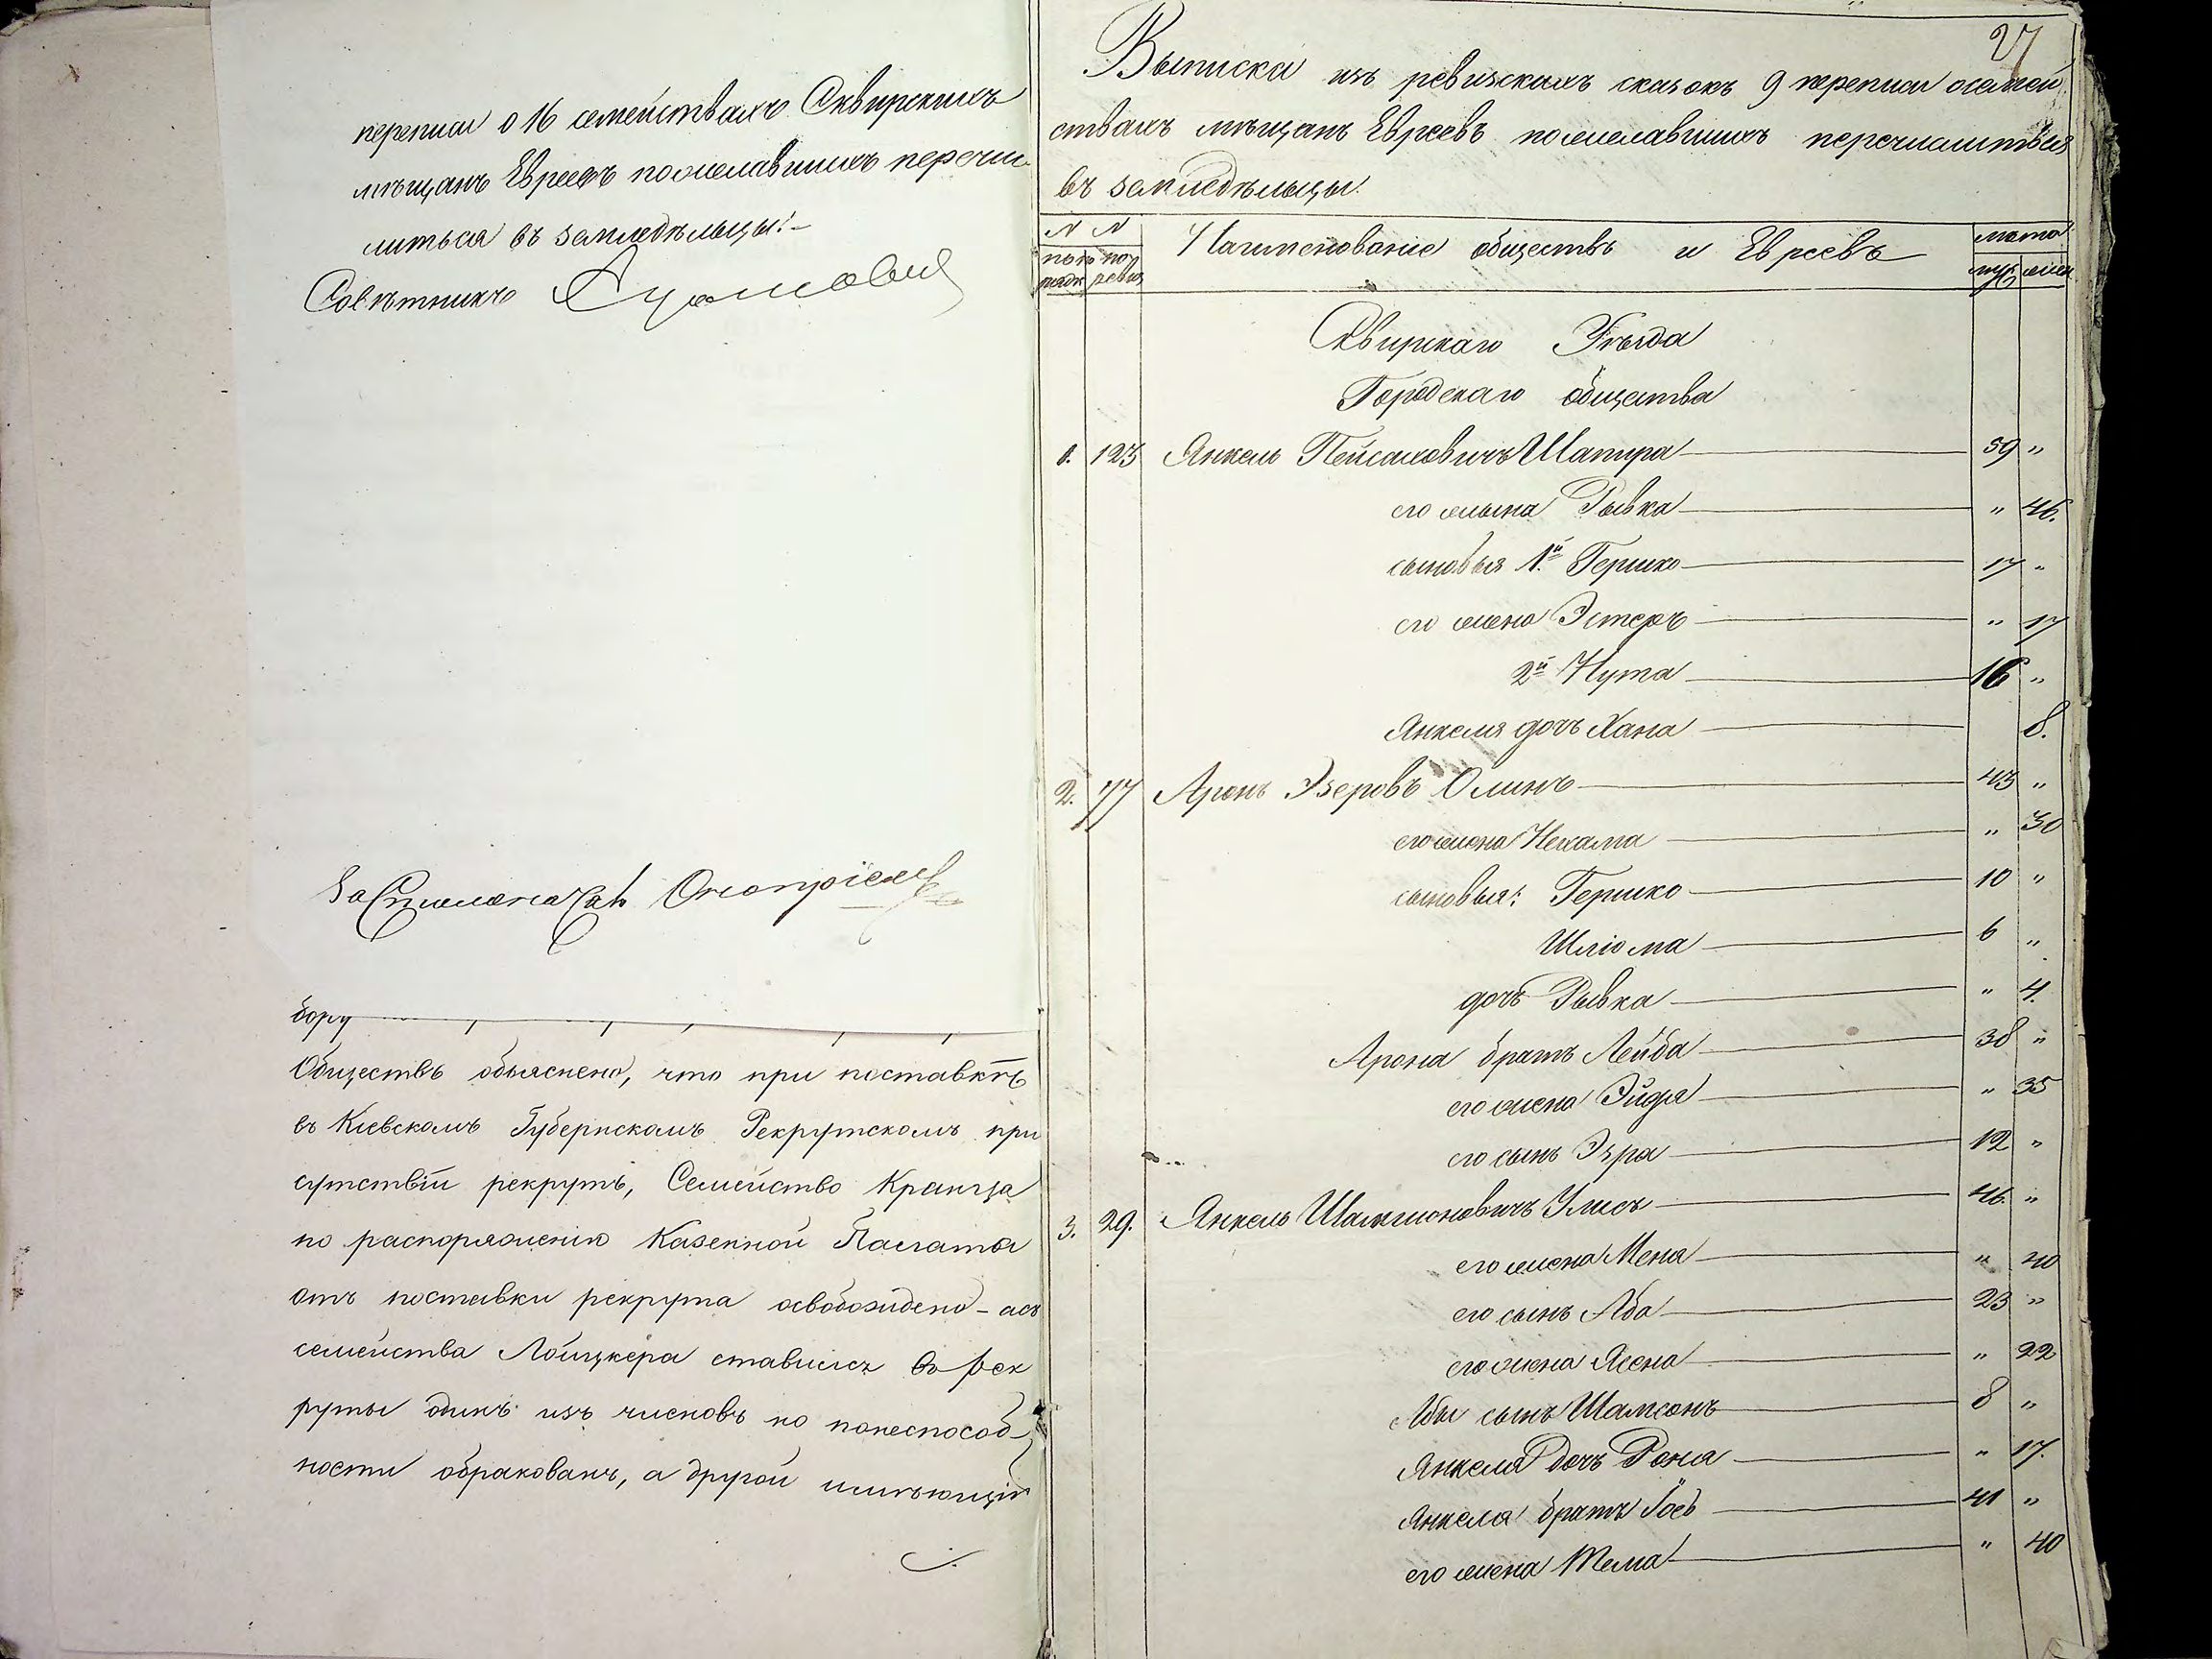 переписи о 16 семействахъ Сквирскихъ
мѣщанъ Евреевъ пожелавшихъ перечи
литься въ земледѣльцы.-
Совѣтникъ
За Столоначал
бору
Обществъ объяснено, что при поставкѣ
въ Кіевскомъ Губернскомъ Рекрутскомъ при
сутствіи рекрутъ, Семейство Кранца
по распоряженію Казенной Палаты
отъ поставки рекрута освобождено - изъ
семейства Лойцкера ставился въ рек
руты одинъ изъ членовъ но по неспособ-
ности обракованъ, а другой имѣющій
27
Выписка изъ ревизскихъ сказокъ 9 переписи о семей
ствахъ мѣщанъ Евреевъ пожелавшихъ перечислиться
въ земледѣльцы.
N N Наименованіе обществъ и Евреевъ лѣта
по по ревиз муж жен
Сквирскаго Уѣзда
Городскаго общества
1. 123 Янкель Пейсаховичъ Шапира 59 "
его жена Рывка " 46.
сыновья 1й Гершко 17 "
его жена Эстеръ " 17
2й Нута 16 "
Янкеля дочь Хана 8.
2. 77 Аронъ Эзеровъ Олинъ 43 "
его жена Нехама " 30
сыновья: Гершко 10 "
Шліома 6 "
дочь Рывка " 4.
Арона братъ Лейба 38 "
его жена Эйдя " 35
его сынъ Эзра 12 "
3. 29. Янкель Шамшоновичъ Улисъ 46. "
его жена Меня " 40
его сынъ Аба 23 "
его жена " 22
Абы сынъ Шамсонъ 8 "
Янкеля дочь Роня " 17.
Янкеля братъ Іосъ 41 "
его жена Тема " 40